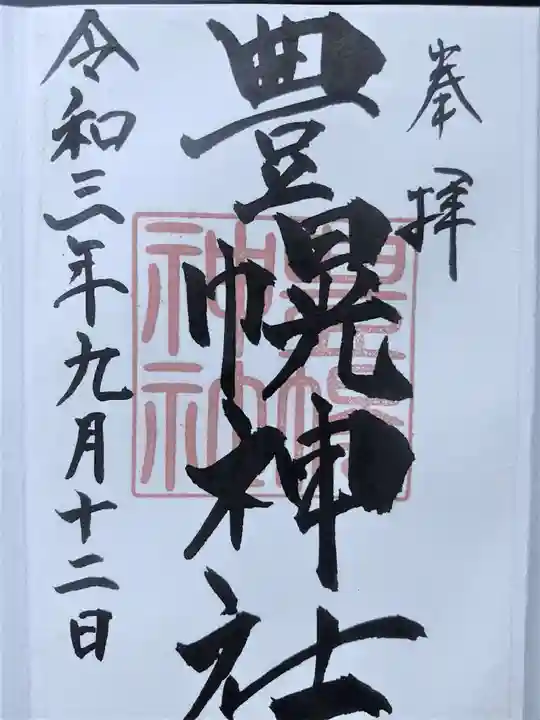 奉拝
豊幌神社
豊幌
神社
令和三年九月十二日